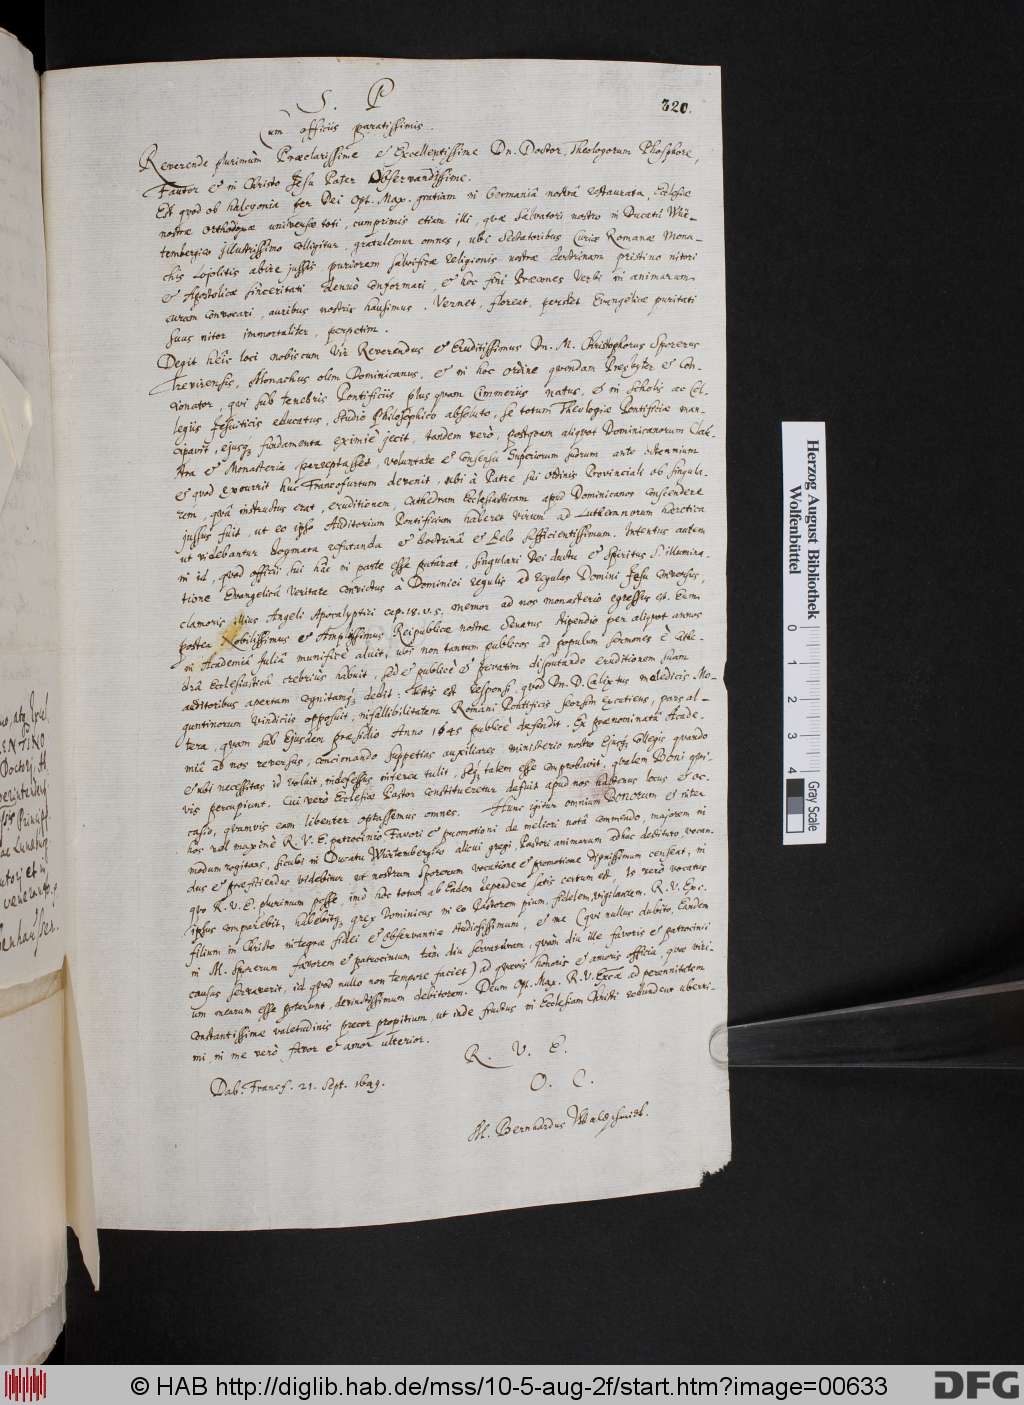 320.
S. P
Cum officiis paratissimis.
Reverende plurimùm Præclarissime et Excellentissime Dn. Doctor, Theologorum Phosphore,
Fautor et in Christo Jesu Pater Observandissime.
Est quod ob halcyonia per Dei Opt. Max. gratiam in Germaniâ nostrâ restaurata, Ecclesiæ
nostræ Orthodoxæ universæ toti, cumprimis etiam illi, quæ Salvatori nostro in Ducatu Wür-
tembergico Illustrissimo colligitur, gratulemur omnes, ubi Sectatoribus Curiæ Romanæ Mona-
chis Lojolitis abire jussis puriorem salvificæ religionis nostræ doctrinam pristino nitori
et Apostolicæ sinceritati denuò conformari, et hoc fini Præcones Verbi in animarum
curam convocari, auribus nostris hausimus. Vernet, floreat, perstet Evangelicæ puritati
suus nitor immortaliter, perpetim.
Degit heic loci nobiscum Vir Reverendus et Eruditissimus Dn. M. Christophorus Sporerus
Trevirensis, Monachus olim Dominicanus, et in hoc ordine quondam Presbyter et Con-
cionator, qui sub tenebris Pontificiis plus quam Cimmeriis natus, et in Scholis ac Col-
legiis Jesuiticis educatus, Studio Philosophico absoluto, se totum Theologiæ Pontificiæ man-
cipavit, ejusq; fundamenta eximiè jecit, tandem verò, postquam aliquot Dominicanorum Clau-
stra et Monasteria voluntate et consensu Superiorum suorum ante
et quod excurrit huc Francofurtum devenit, ubi à Patre sui ordinis Provinciali ob singula-
rem, quâ instructus erat, eruditionem Cathedram Ecclesiasticam apud Dominicanos conscendere
jussus fuit, ut eo ipso Auditorium Pontificium haberet virum ad Lutheranorum hæretica
ut videbantur dogmata refutanda et doctrinâ et zelo sufficientissimum. Intentus autem
in id, quod officii sui hac in parte esse putarat, singulari Dei ductu et Spiritus S. illumina-
tione Evangelicâ veritate convictus à Dominici regulis ad regulas Domini Jesu conversus,
clamoris illius Angeli Apocalyptici cap. 18. v. 5. memor ad nos monasterio egressus est. Eum
postea Nobilissimus et Amplissimus Reipublicæ nostræ Senatus stipendio per aliquot annos
in Academiâ Juliâ munificè aluit, ubi non tantum publicos ad populum sermones è cathe-
drâ Ecclesiasticâ crebriùs habuit, sed et publicè et privatim disputando eruditionem suam
auditoribus apertam cognitamq; dedit: Testis est Respons. quod Dn. D. Calixtus maledicis Mo-
guntinorum vindiciis opposuit, infallibilitatem Romani Pontificis seorsim excutiens, pars al-
tera, quam sub Ejusdem præsidio Anno 1645 publicè defendit. Ex prænominatâ Acade-
miâ ad nos reversus, concionando suppetias auxiliares ministerio nostro Ejusq; Collegis quando
et ubi necessitas id voluit, indefessus interea tulit, seq; talem esse comprobavit, qualem Boni qui-
vis percupiunt. Cui verò Ecclesiæ Pastor constitueretur defuit apud nos hactenus locus et oc-
casio, quamvis eam libenter optassemus omnes. Hunc igitur omnium Bonorum et inter
hos vel maximè R. V. E. patrocinio favori et promotioni de meliori notâ commendo, majorem in
modum rogitans, sicubi in Ducatu Würtembergico alicui gregi Pastori animarum adhuc destituto, vocan-
dus et præficiendus videbitur ut nostrum Sporerum vocatione et promotione dignissimum censeat, in
quo R. V. E. plurimum posse, imò hoc totum ab Eadem dependere satis certum est. Is verò vocatus
ipsus comparebit, habebitq; grex Dominicus in eo Pastorem pium, fidelem, vigilantem, R. V. Exc.
filium in Christo integræ fidei et observantiæ studiosissimum, et me (qui nullus dubito, Eandem
in M. Sporerum favorem et patrocinium tam diu servaturam, quàm diu ille favoris et patrocinii
causas servaverit, id quod nullo non tempore faciet) ad quævis honoris et amoris officia, quæ viri-
um mearum esse poterunt, devinctissimum debitorem. Deum Opt. Max. R. V. Excæ ad perennitatem
constantissimæ valetudinis precor propitium, ut inde fructus in Ecclesiam Christi redundent uberri-
mi, in me verò, favor et amor ulterior.
R. V. E.
O. C.
Dab. Francf. 21. Sept. 1649.
M. Bernhardus Waldschmidt.
ENTINO
Doctori
Princip
Herzog August Bibliothek
Wolfenbüttel
0 1 2 3 4
Gray Scale
© HAB http://diglib.hab.de/mss/10-5-aug-2f/start.htm?image=00633
DFG